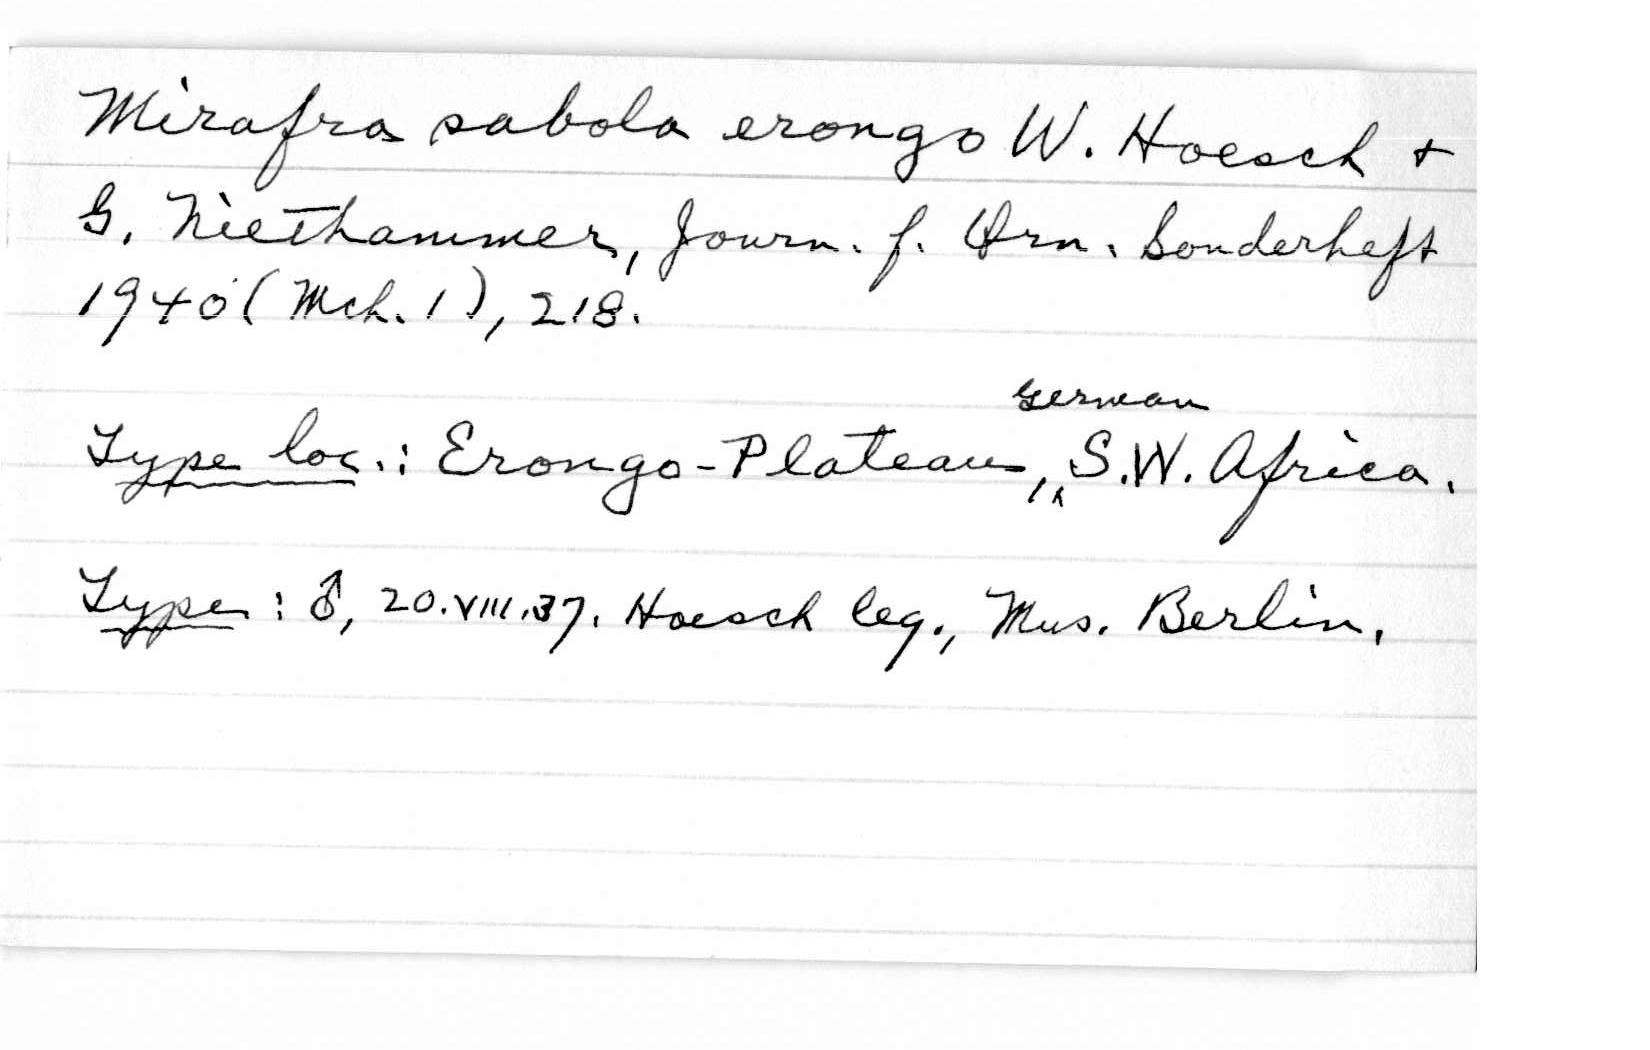 Mirafra sabola erongo W. Hoesch +
G. Niethammer, Journ. f. Orn. Sonderheft
1940 (Mch. 1), 218.
Type loc.: Erongo-Plateau, German S.W. Africa.
Type: ♂, 20.VIII.37. Hoesch leg., Mus. Berlin.